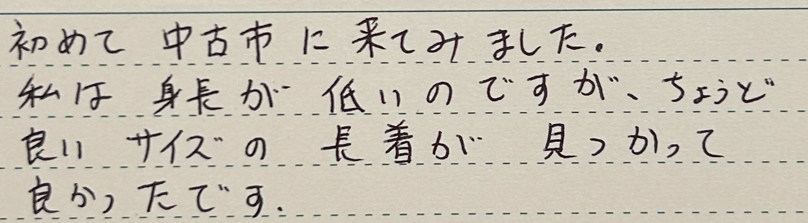 初めて 中古市 に 来てみ ました。
私は 身長が 低いのですが、ちょうど
良い サイズの 長着が 見つかって
良かったです.